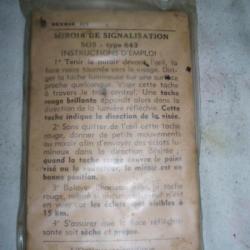 MIROIR DE SIGNALISATION
SOS - type 643
INSTRUCTIONS D'EMPLOI :
1° Tenir le miroir devant l'œil, la
face noire tournée vers le visage. Diri-
ger la tache lumineuse sur une surface
proche quelconque. Viser cette tache
à travers le trou central. Une tache
rouge brillante apparaît alors dans la
direction de la lumière réfléchie. Cette
tache indique la direction de la visée.
2° Sans quitter de l'œil cette tache
rouge, donner de petits mouvements
au miroir afin d'envoyer des éclats lu-
mineux dans la direction désirée :
quand la tache rouge couvre le point
visé ou le est
en bonne position.
3° Balayer l'horizon tache
rouge, même si
vue et les éclats visibles à
15 km.
4° S'assurer que la face réfléchis-
sante soit sèche et propre.